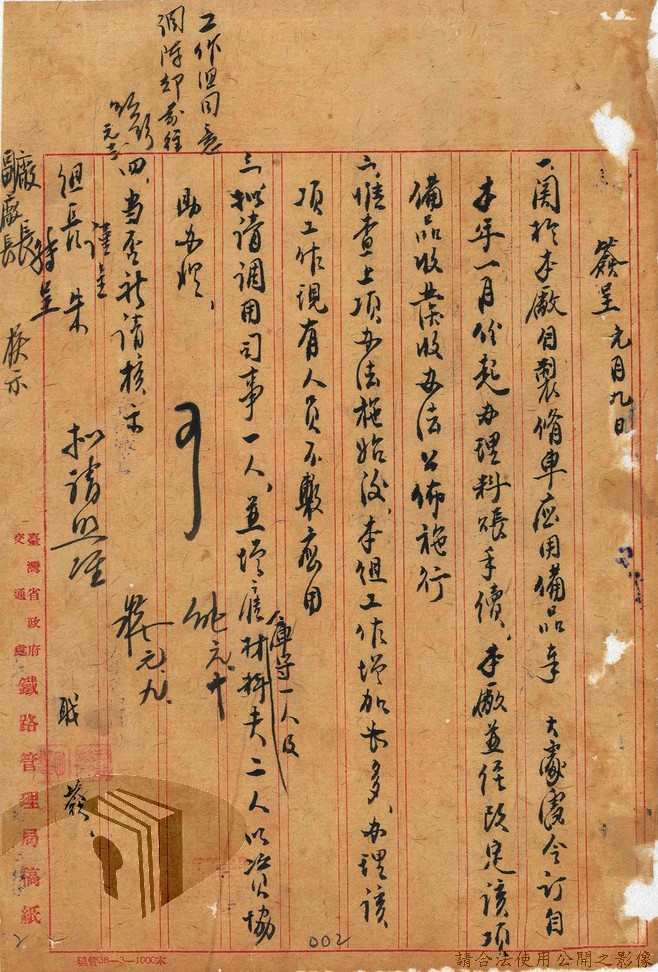 簽呈 元月九日
一、關於本廠自製脩車應用備品奉 大處處令訂自
本年一月份起办理料賬手續、本廠並經改定該項
備品收發收办法公佈施行
二、惟查上項办法施始後、本組工作增加夫多、办理該
項工作現有人員不敷應用
三、拟請調用司事一人、並增雇材料夫二人以資協
庫守一人及
助办理、
四、當否祈請核示
謹呈
組長 朱
轉呈
廠長
副廠長
核示
職 蔡
可
元、十
蔡 元、九、
拟請照准
工作組同意
調陳却前往
臺灣省政府
交通處
鐵路管理局稿紙
總管38—3—1000本
002
請合法使用公開之影像